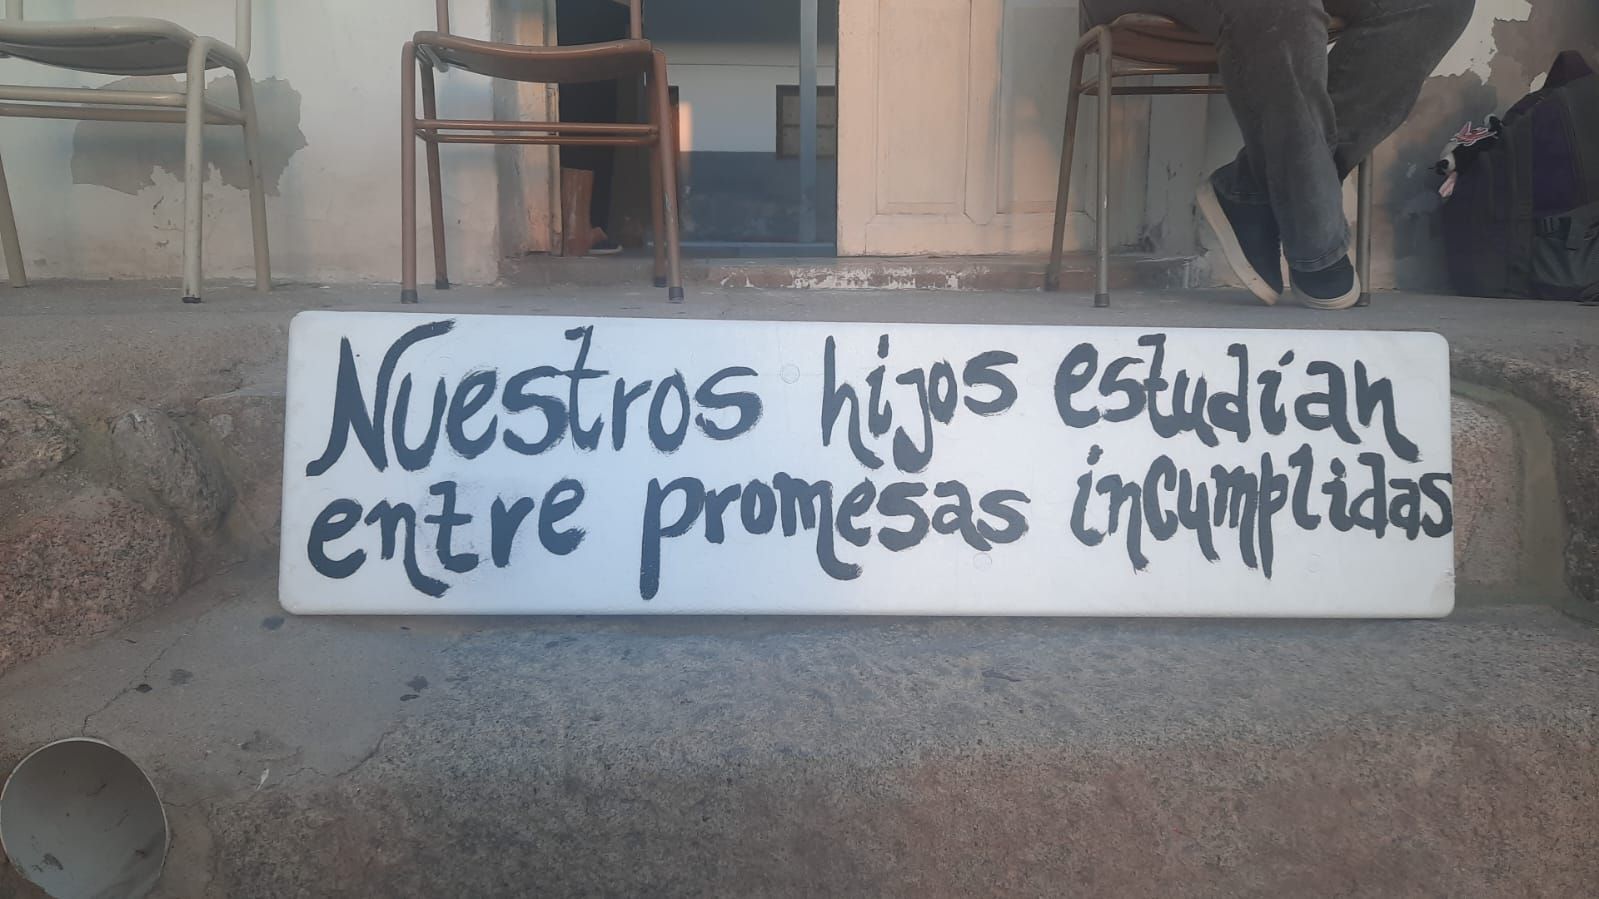 Nuestros hijos estudían
entre promesas incumplidas